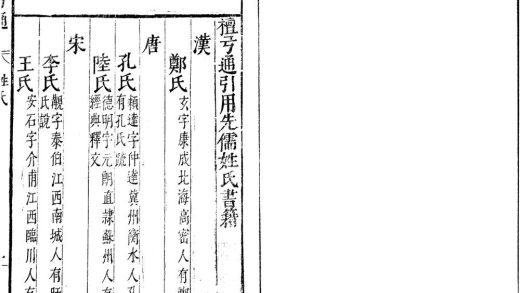 檀弓通引用先儒姓氏書籍
漢
鄭氏 玄字康成北海高密人有鄭
唐
孔氏 穎達字仲達冀州衡水人孔
有孔氏疏
陸氏 德明字元朗直隸蘇州人有
經典釋文
宋
李氏 覯字泰伯江西南城人有
氏說
王氏 安石字介甫江西臨川人有
通 姓氏